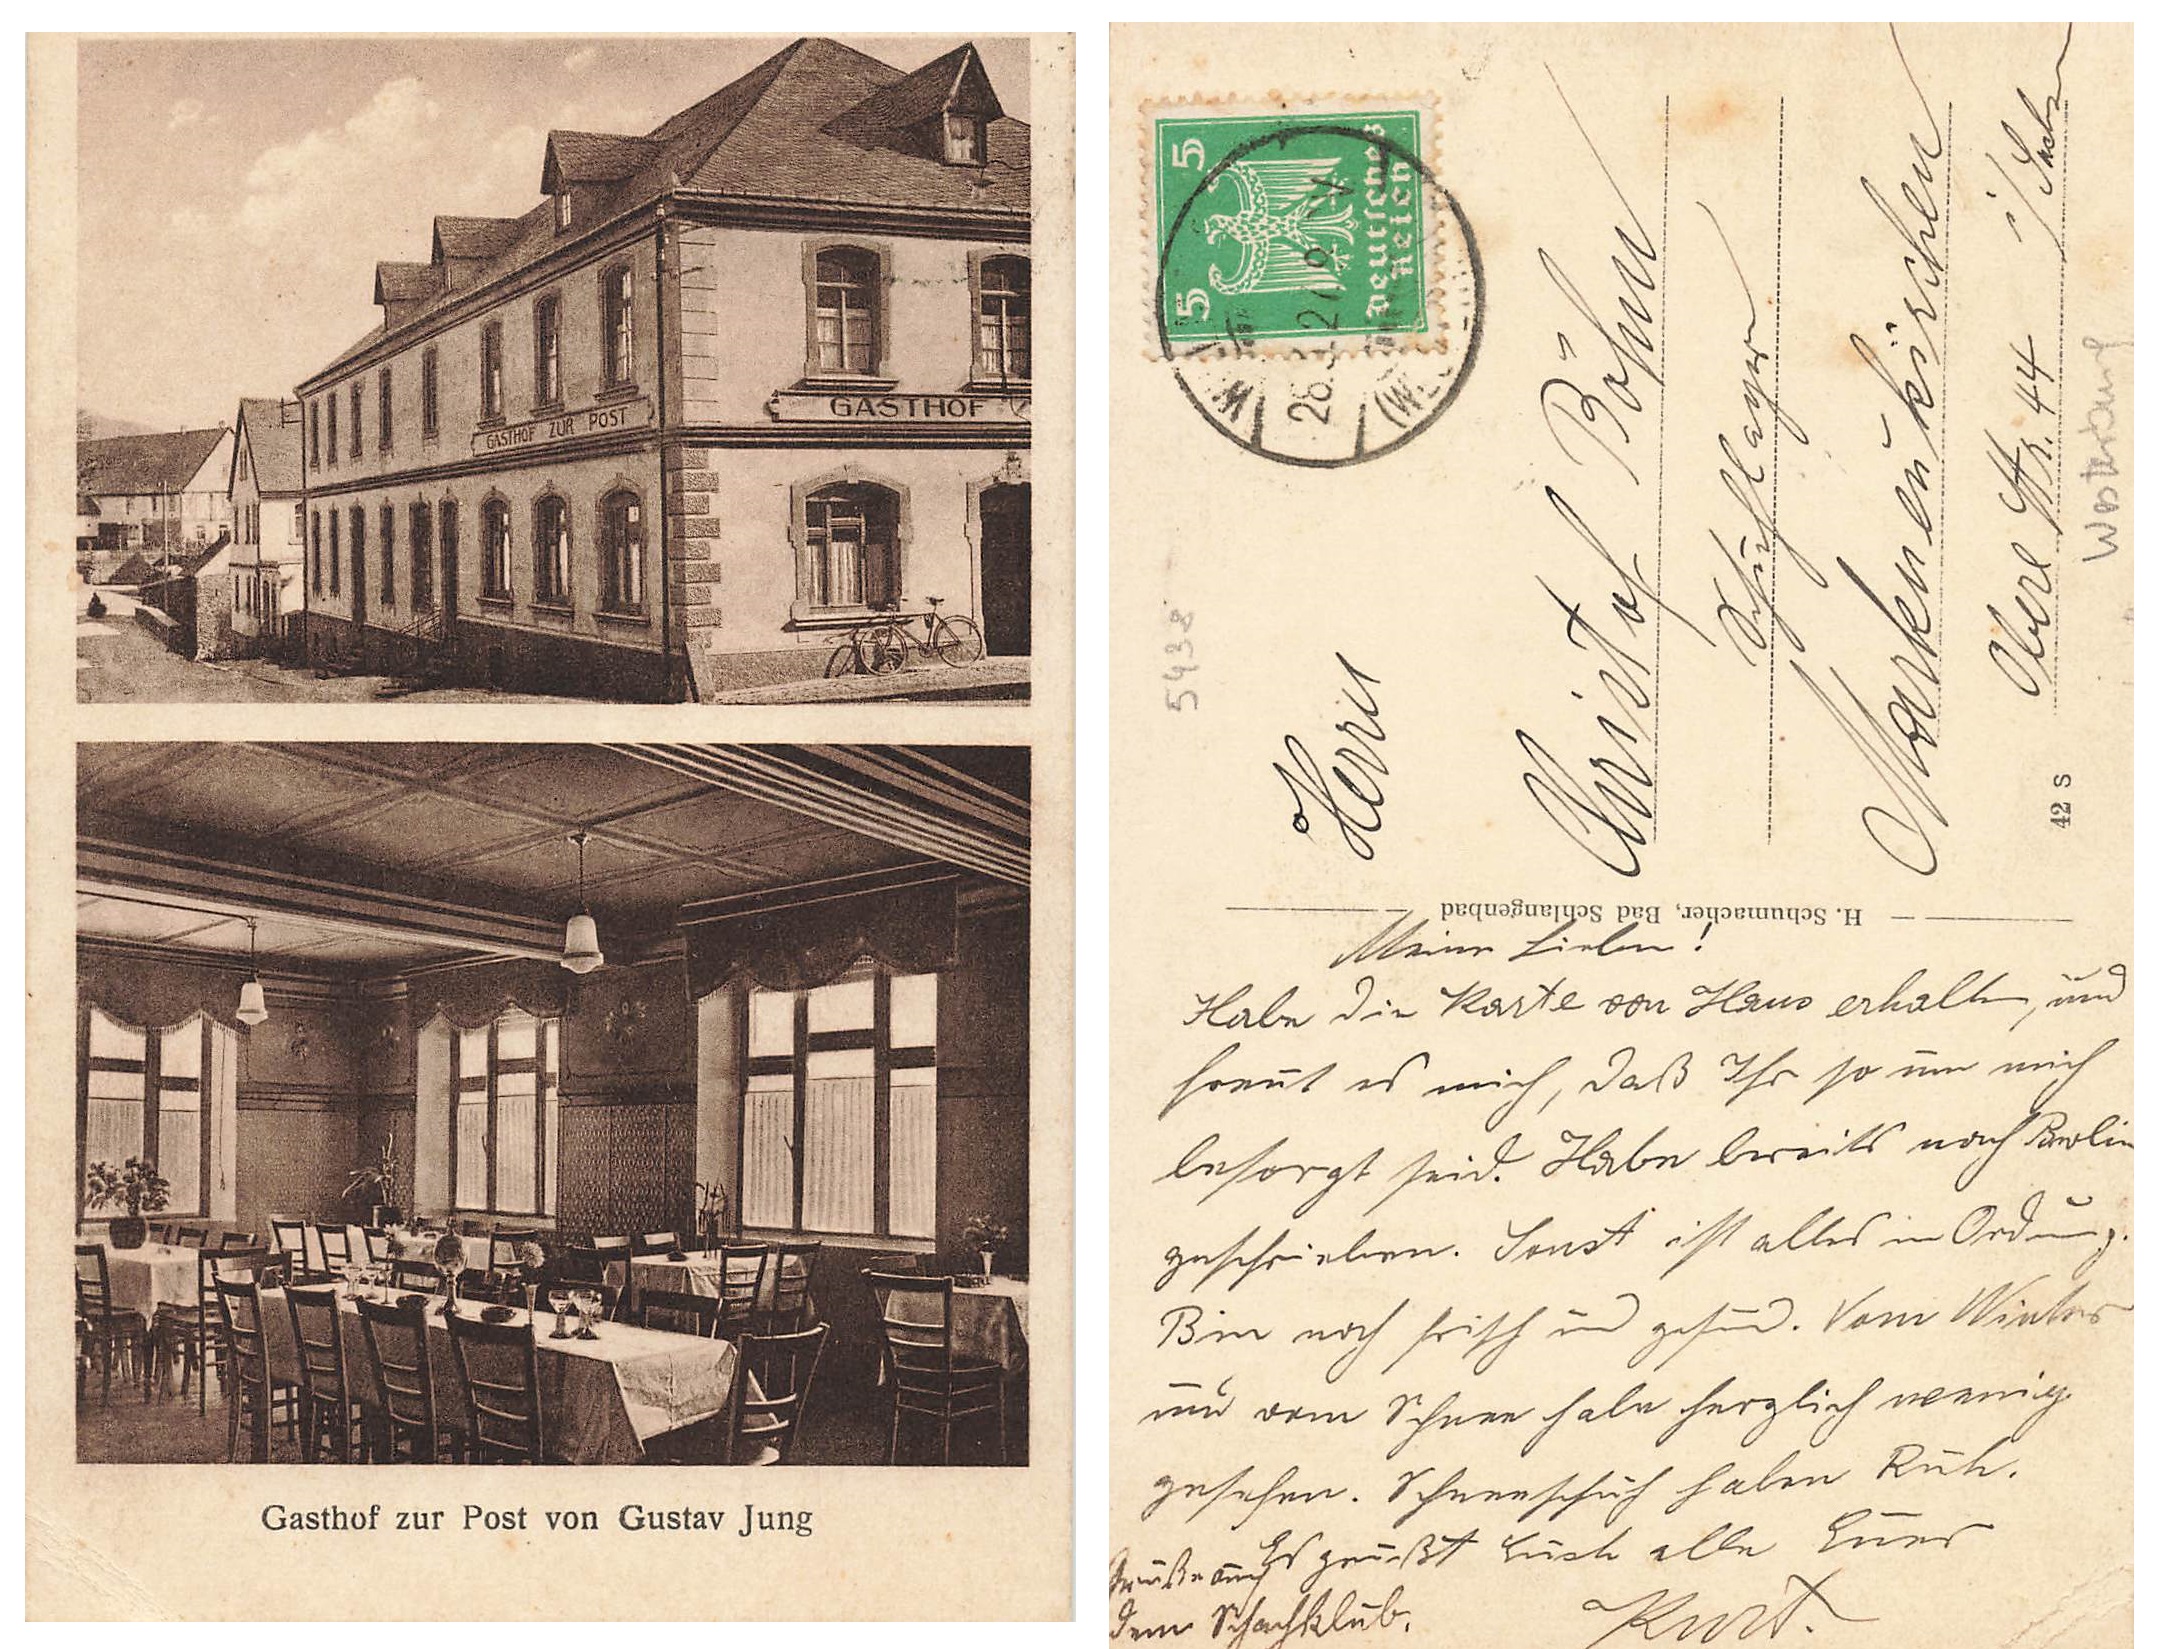 GASTHOF ZUR POST
GASTHOF
Gasthof zur Post von Gustav Jung
5 5
Deutsches
Reich
5438
Herrn
Christof Böhm
Schuhlager
Markneukirchen
Obere Str. 44 i/Sachsen
Westerburg
42 S
H. Schumacher, Bad Schlangenbad
Meine Lieben!
Habe die Karte von Haus erhalten, und
freut es mich, daß Ihr so um mich
besorgt seid. Habe bereits nach
geschrieben. Sonst ist alles in Ordnung.
Bin noch frisch und gesund. Vom Winter
und vom Schnee habe herzlich wennig
gesehen. Schneeschuh haben Ruh.
Es grüßt Euch alle Euer
Kurt.
Grüße auch
dem Schachklub.